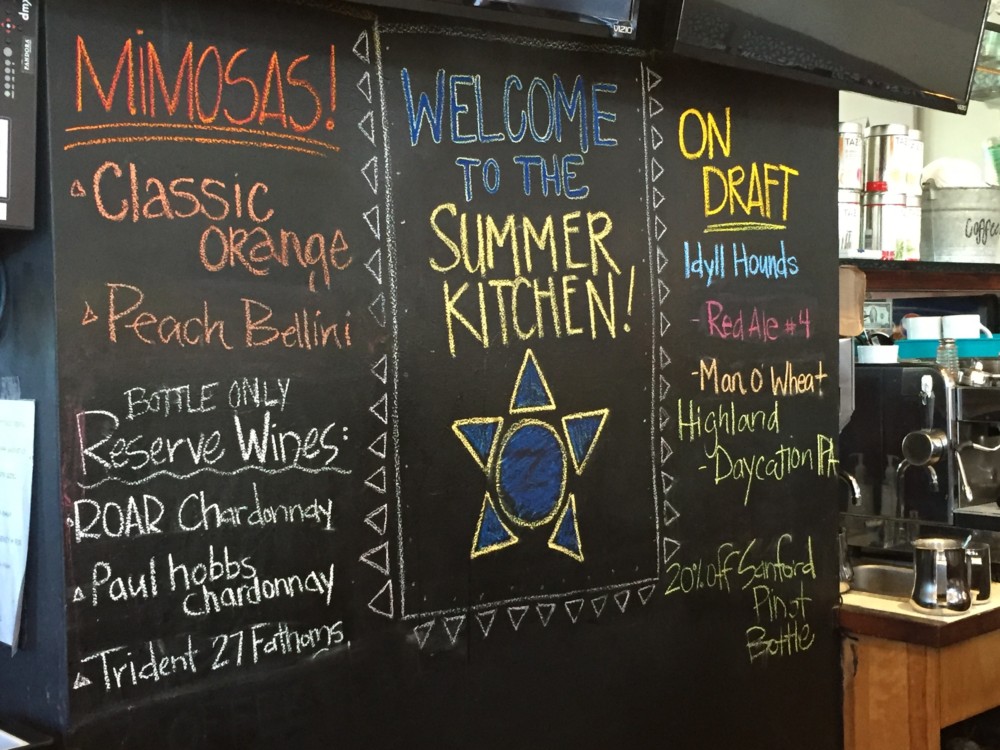 MIMOSAS!
Classic
orange
Peach Bellini
BOTTLE ONLY
Reserve Wines:
ROAR Chardonnay
Paul hobbs
chardonnay
Trident 27 Fathoms
WELCOME
TO THE
SUMMER
KITCHEN!
ON
DRAFT
Idyll Hounds
- Red Ale #4
- Man O Wheat
Highland
- Daycation IPA
20% off Sanford
Pinot
Bottle
VIZIO
Coffee